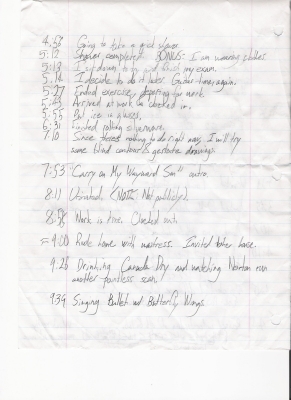 4:56 Going to take a quick shower.
5:12 Shower completed. BONUS: I am wearing clothes.
5:13 I sit down to finish my exam.
5:14 I decide to do it later. Guitar time again.
5:27 Ended exercise, prepping for work.
5:43 Arrived at work and clocked in.
5:55 Put ice in glasses.
6:31 Started rolling silverware.
7:10 Since there's nothing to do right now, I will try
some blind contour & gesture drawings.
7:53 Carry on My Wayward Son outro.
8:11 Urinated. (NOTE: Not publicly).
8:58 Work is over. Clocked out.
≈ 9:00 Rode home with waitress. Invited later
9:26 Drinking Canada Dry and watching Norton run
another pointless scan.
9:39 Singing Bullet w/ Butterfly Wings.